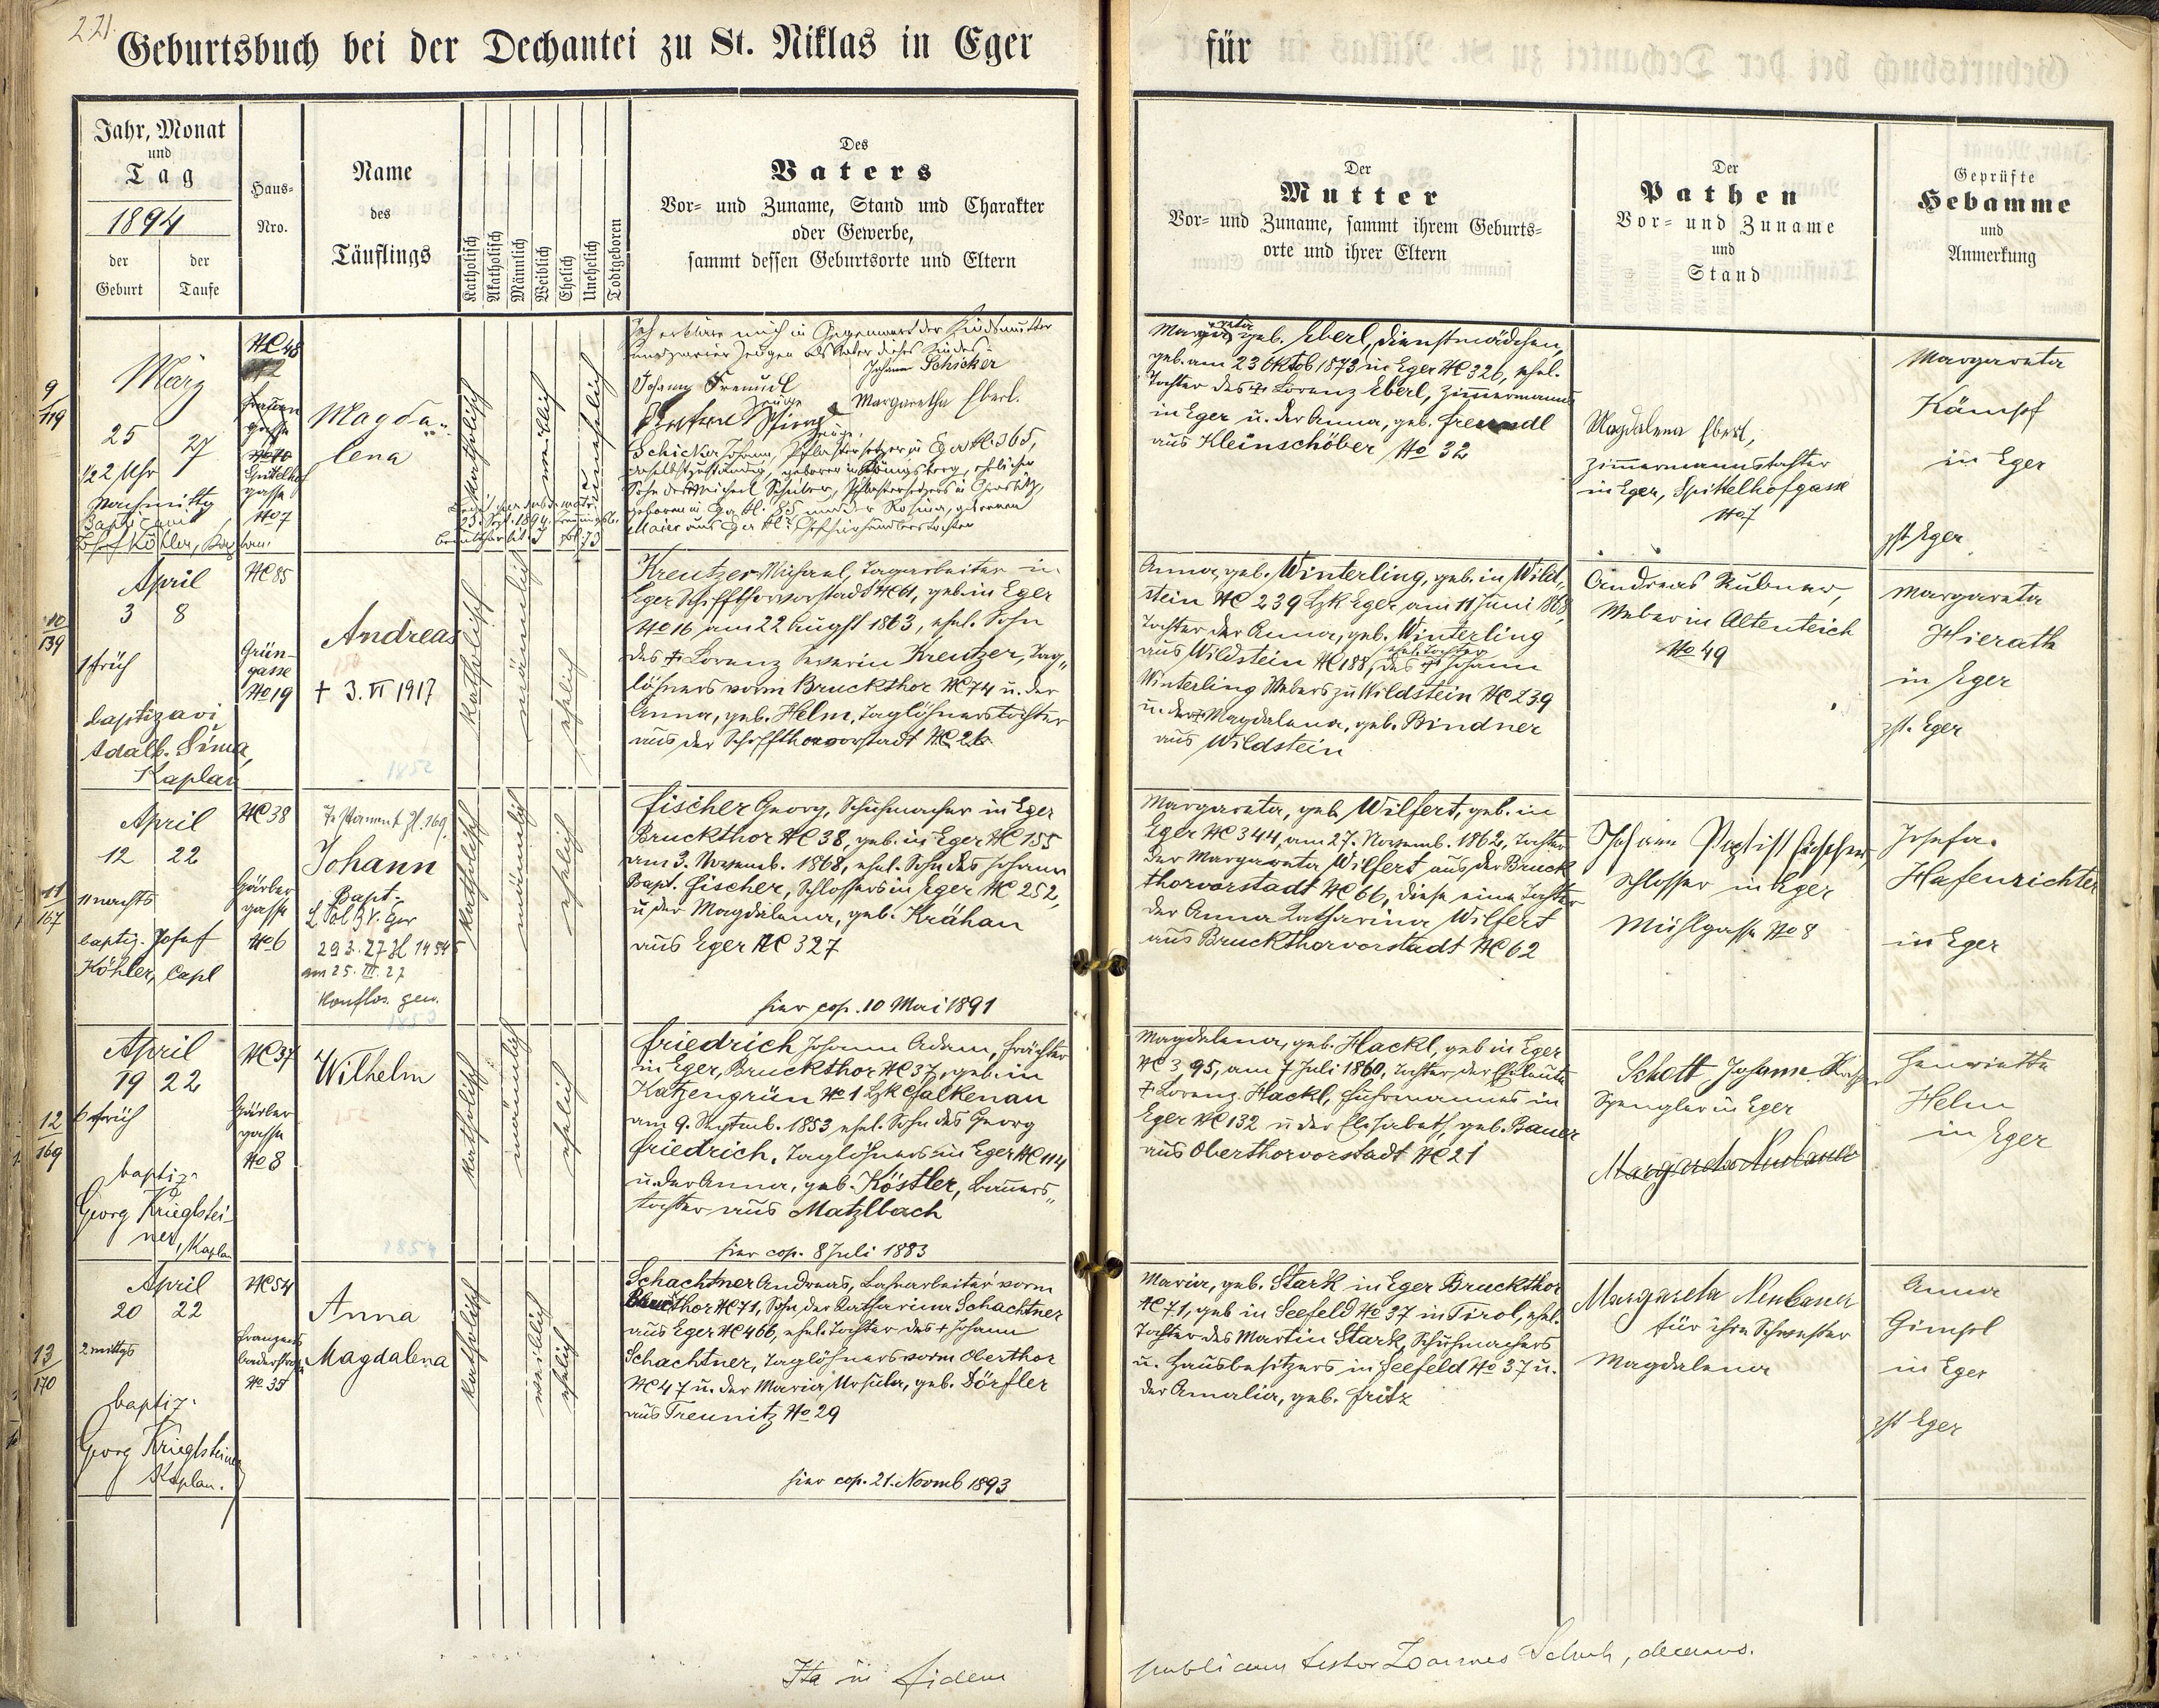 221.
Geburtsbuch bei der Dechantei zu St. Niklas in Eger
für
Jahr, Monat
und
Tag
1894
der Geburt
der Taufe
Haus-
Nro.
Name
des
Täuflings
Katholisch
Akatholisch
Männlich
Weiblich
Ehelich
Unehelich
Todtgeboren
Des
Vaters
Vor- und Zuname, Stand und Charakter
oder Gewerbe,
sammt dessen Geburtsorte und Eltern
Der
Mutter
Vor- und Zuname, sammt ihrem Geburts-
orte und ihrer Eltern
Der
Pathen
Vor- und Zuname
und
Stand
Geprüfte
Hebamme
und
Anmerkung
9
119
März
25 27
1/2 2 Uhr
Nachmittg
Josef Köhler, Kaplan.
NC 48
Spittelhof
gasse
No 7
Magda-
lena
katholisch
weiblich
unehelich
Ich erkläre mich in Gegenwart der Kindsmutter
und zweier Zeugen als Vater dieses Kindes.
Johann Schicker
Johann Freundl
Zeuge
Margaretha Eberl.
Zeuge.
Schicker Johann, Pflastersetzer in Eger No. 365,
daselbst zuständig, geboren in Königsberg, ehelicher
Margareta geb. Eberl, Dienstmädchen,
geb. am 23 Oktob 1873 in Eger NC 326, ehel.
Tochter des † Lorenz Eberl, Zimmermanns
in Eger u. der Anna, geb. Freundl
aus Kleinschöber No 32
Magdalena Eberl,
Zimmermannstochter
in Eger, Spittelhofgasse
No 7
Margareta
Kämpf
in Eger
zst Eger
10
139
April
3 8
1 früh
baptizavi
Adalb. Sima,
Kaplan
NC 85
Grün-
gasse
No 19
Andreas
† 3. VI 1917
katholisch
männlich
ehelich
Kreutzer Michael, Tagarbeiter in
Eger Schiffthorvorstadt NC 61, geb. in Eger
No 16 am 22 August 1863, ehel. Sohn
des † Lorenz Severin Kreutzer, Tag-
löhners vorm Bruckthor NC 74 u. der
Anna, geb. Helm, Taglöhnerstochter
aus der Schiffthorvorstadt NC 26
Anna, geb. Winterling, geb. in Wild-
stein NC 239 Bzk Eger am 11 Juni 1868,
Tochter der Anna, geb. Winterling
aus Wildstein NC 188, ehel. Tochter des † Johann
Winterling Webers zu Wildstein NC 239
u. der † Magdalena, geb. Bindner
aus Wildstein
Andreas Rubner,
Weber in Altenteich
No 49
Margareta
Hierath
in Eger
zst. Eger
11
167
April
12 22
11 nachts
baptiz. Josef
Köhler, Capl
NC 38
Gärber
gasse
No 6
Johann
Bapt.
29 3. 27 Zl 14545
am 25. III. 27
konflos. gew.
katholisch
männlich
ehelich
Fischer Georg, Schuhmacher in Eger
Bruckthor NC 38, geb. in Eger NC 155
am 3. Novemb. 1868, ehel. Sohn des Johann
Bapt. Fischer, Schlossers in Eger NC 252,
u. der Magdalena, geb. Krähan
aus Eger NC 327
hier cop. 10 Mai 1891
Margareta, geb. Wilfert, geb. in
Eger NC 344, am 27. Novemb. 1862, Tochter
der Margareta Wilfert aus der Bruck
thorvorstadt NC 66, diese eine Tochter
der Anna Katharina Wilfert
aus Bruckthorvorstadt NC 62
Johann Baptist Fischer,
Schlosser in Eger
Mühlgasse No 8
Josefa
Hafenrichter
in Eger
12
169
April
19 22
6 früh
baptiz.
Georg Krieglstei-
ner, Kaplan
NC 37
Gärber
gasse
No 8
Wilhelm
katholisch
männlich
ehelich
Friedrich Johann Adam, Frächter
in Eger, Bruckthor NC 37, geb. in
Katzengrün No 1 Bzk Falkenau
am 9. Septemb. 1853 ehel. Sohn des Georg
Friedrich, Taglöhners in Eger NC 114
u. der Anna, geb. Köstler, Bauers-
tochter aus Matzlbach
hier cop. 8 Juli 1883
Magdalena, geb. Hackl, geb in Eger
NC 395, am 7 Juli 1860, Tochter der Eheleute
† Lorenz Hackl, Fuhrmannes in
Eger NC 132 u. der Elisabeth, geb. Bauer
aus Oberthorvorstadt NC 21
Schott Johann
Spengler in Eger
Margareta Neubauer
Henriette
Helm
in Eger
13
170
April
20 22
2 mittgs
baptiz.
Georg Krieglsteiner
Kaplan.
NC 54
Franzens
baderstraße
No 35
Anna
Magdalena
katholisch
weiblich
ehelich
Schachtner Andreas, Bahnarbeiter vorm
Bruckthor NC 71, Sohn der Katharina Schachtner
aus Eger NC 466, ehel. Tochter des † Johann
Schachtner, Taglöhners vorm Oberthor
NC 47 u. der Maria Ursula, geb. Dörfler
aus Treunitz No 29
hier cop. 21. Novmb 1893
Maria, geb. Stark in Eger Bruckthor
NC 71, geb in Seefeld No 37 in Tirol, ehel.
Tochter des Martin Stark, Schuhmachers
u. Hausbesitzers in Seefeld No 37 u.
der Amalia, geb. Fritz
Margareta Neubauer
für ihre Schwester
Magdalena
Anna
Gimpl
in Eger
zst Eger
Ita in fidem
publicam testor Joannes Schuh, decanus.